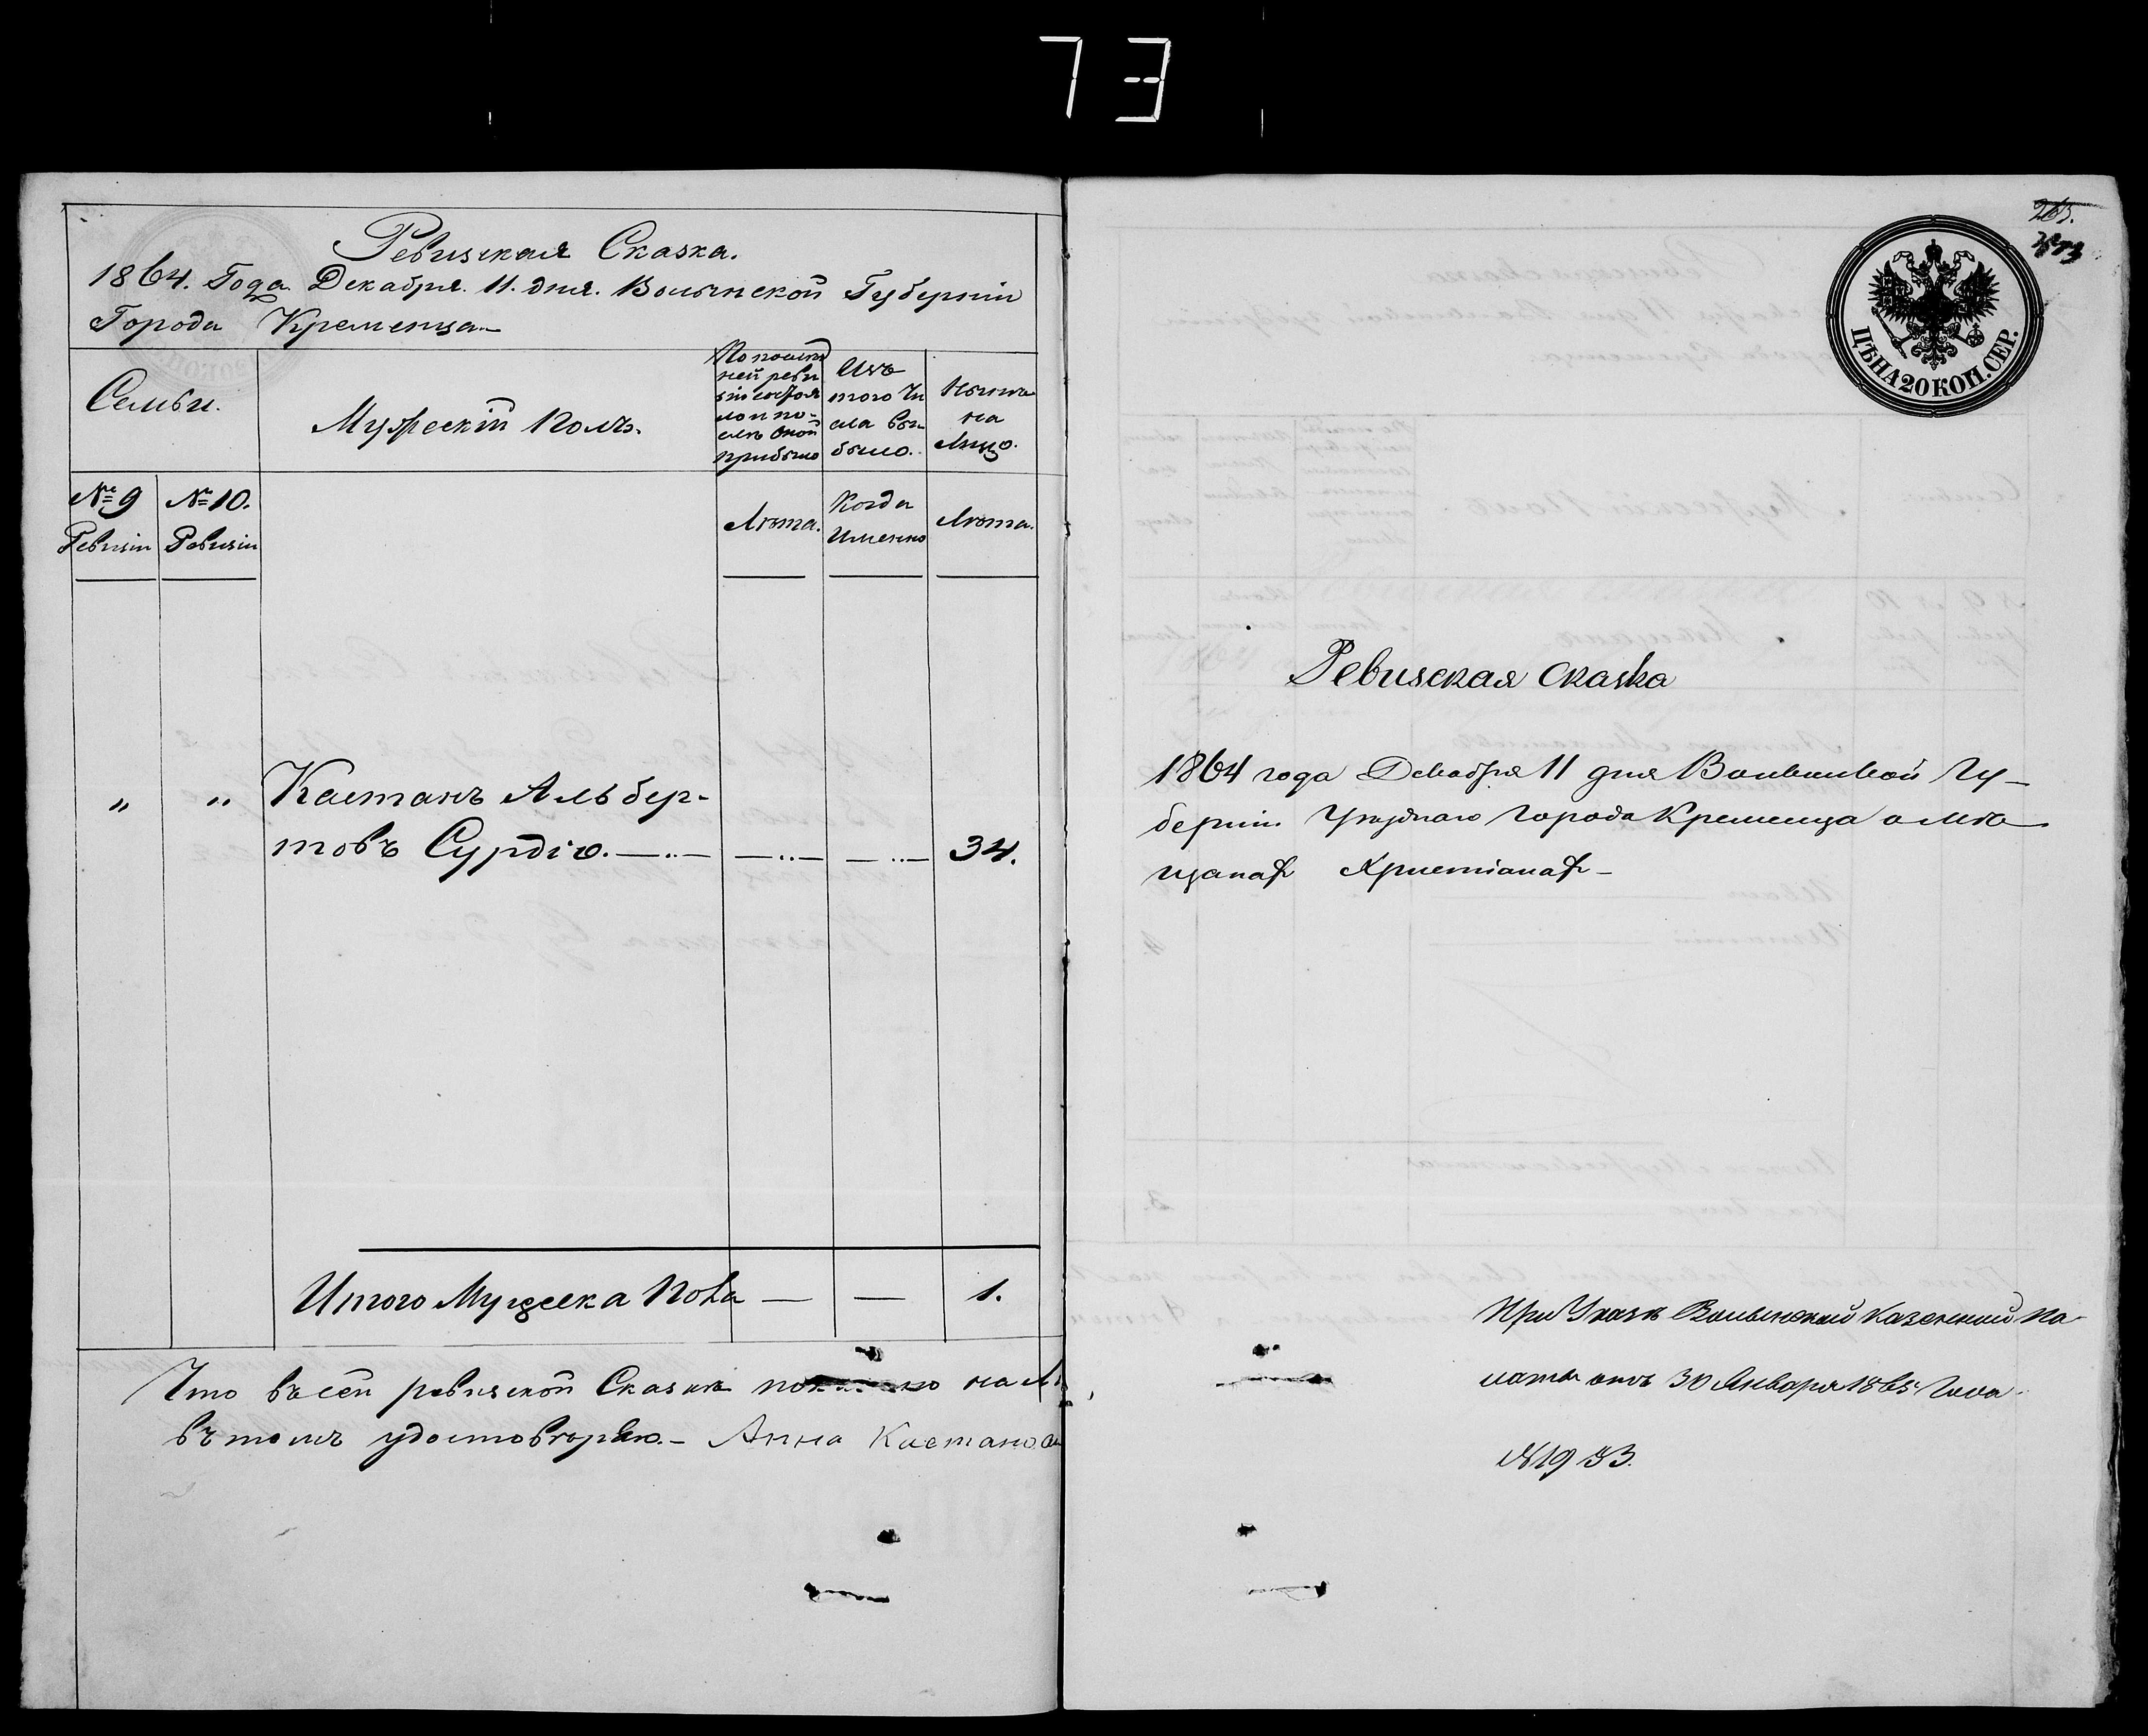 73
Ревизская Сказка.
1864. Года Декабря. 11. дня. Волынской Губерніи
Города Кременца
Семьи.
Мужескій Полъ.
По послѣд
ней реви
зіи состоя
ло и по-
слѣ оной
прибыло
Изъ
того чи
сла вы-
было.
Нынѣ
на
Лицо.
№ 9
Ревизіи
№ 10.
Ревизіи
Лѣта.
Когда
Именно
Лѣта.
" " Каетанъ Альбер-
товъ Сурдіо. 34.
Итого Мужеска Пола — — 1.
Что въ сей ревизской Сказкѣ на
въ томъ удостовѣряю.- Анна
ЦѢНА 20 КОП. СЕР.
Ревизская сказка
1864 года Декабря 11 дня Волынской Гу-
берніи Уѣзднаго Города Кременца о мѣ-
щанах Христіанах-
При Указѣ Волынской Казенной Па-
латы отъ 30 Января 1865 Года